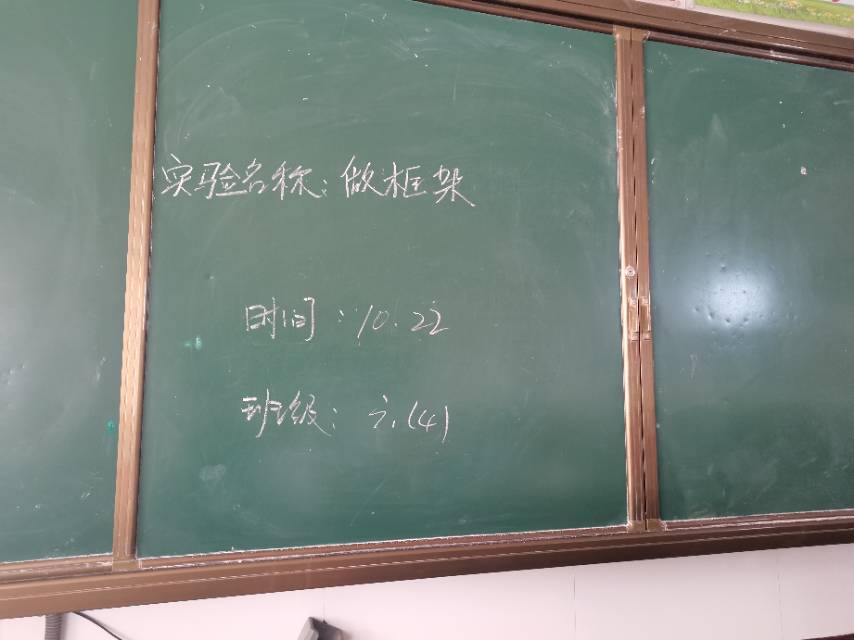 实验名称：做框架
时间：10.22
班级：六.(4)